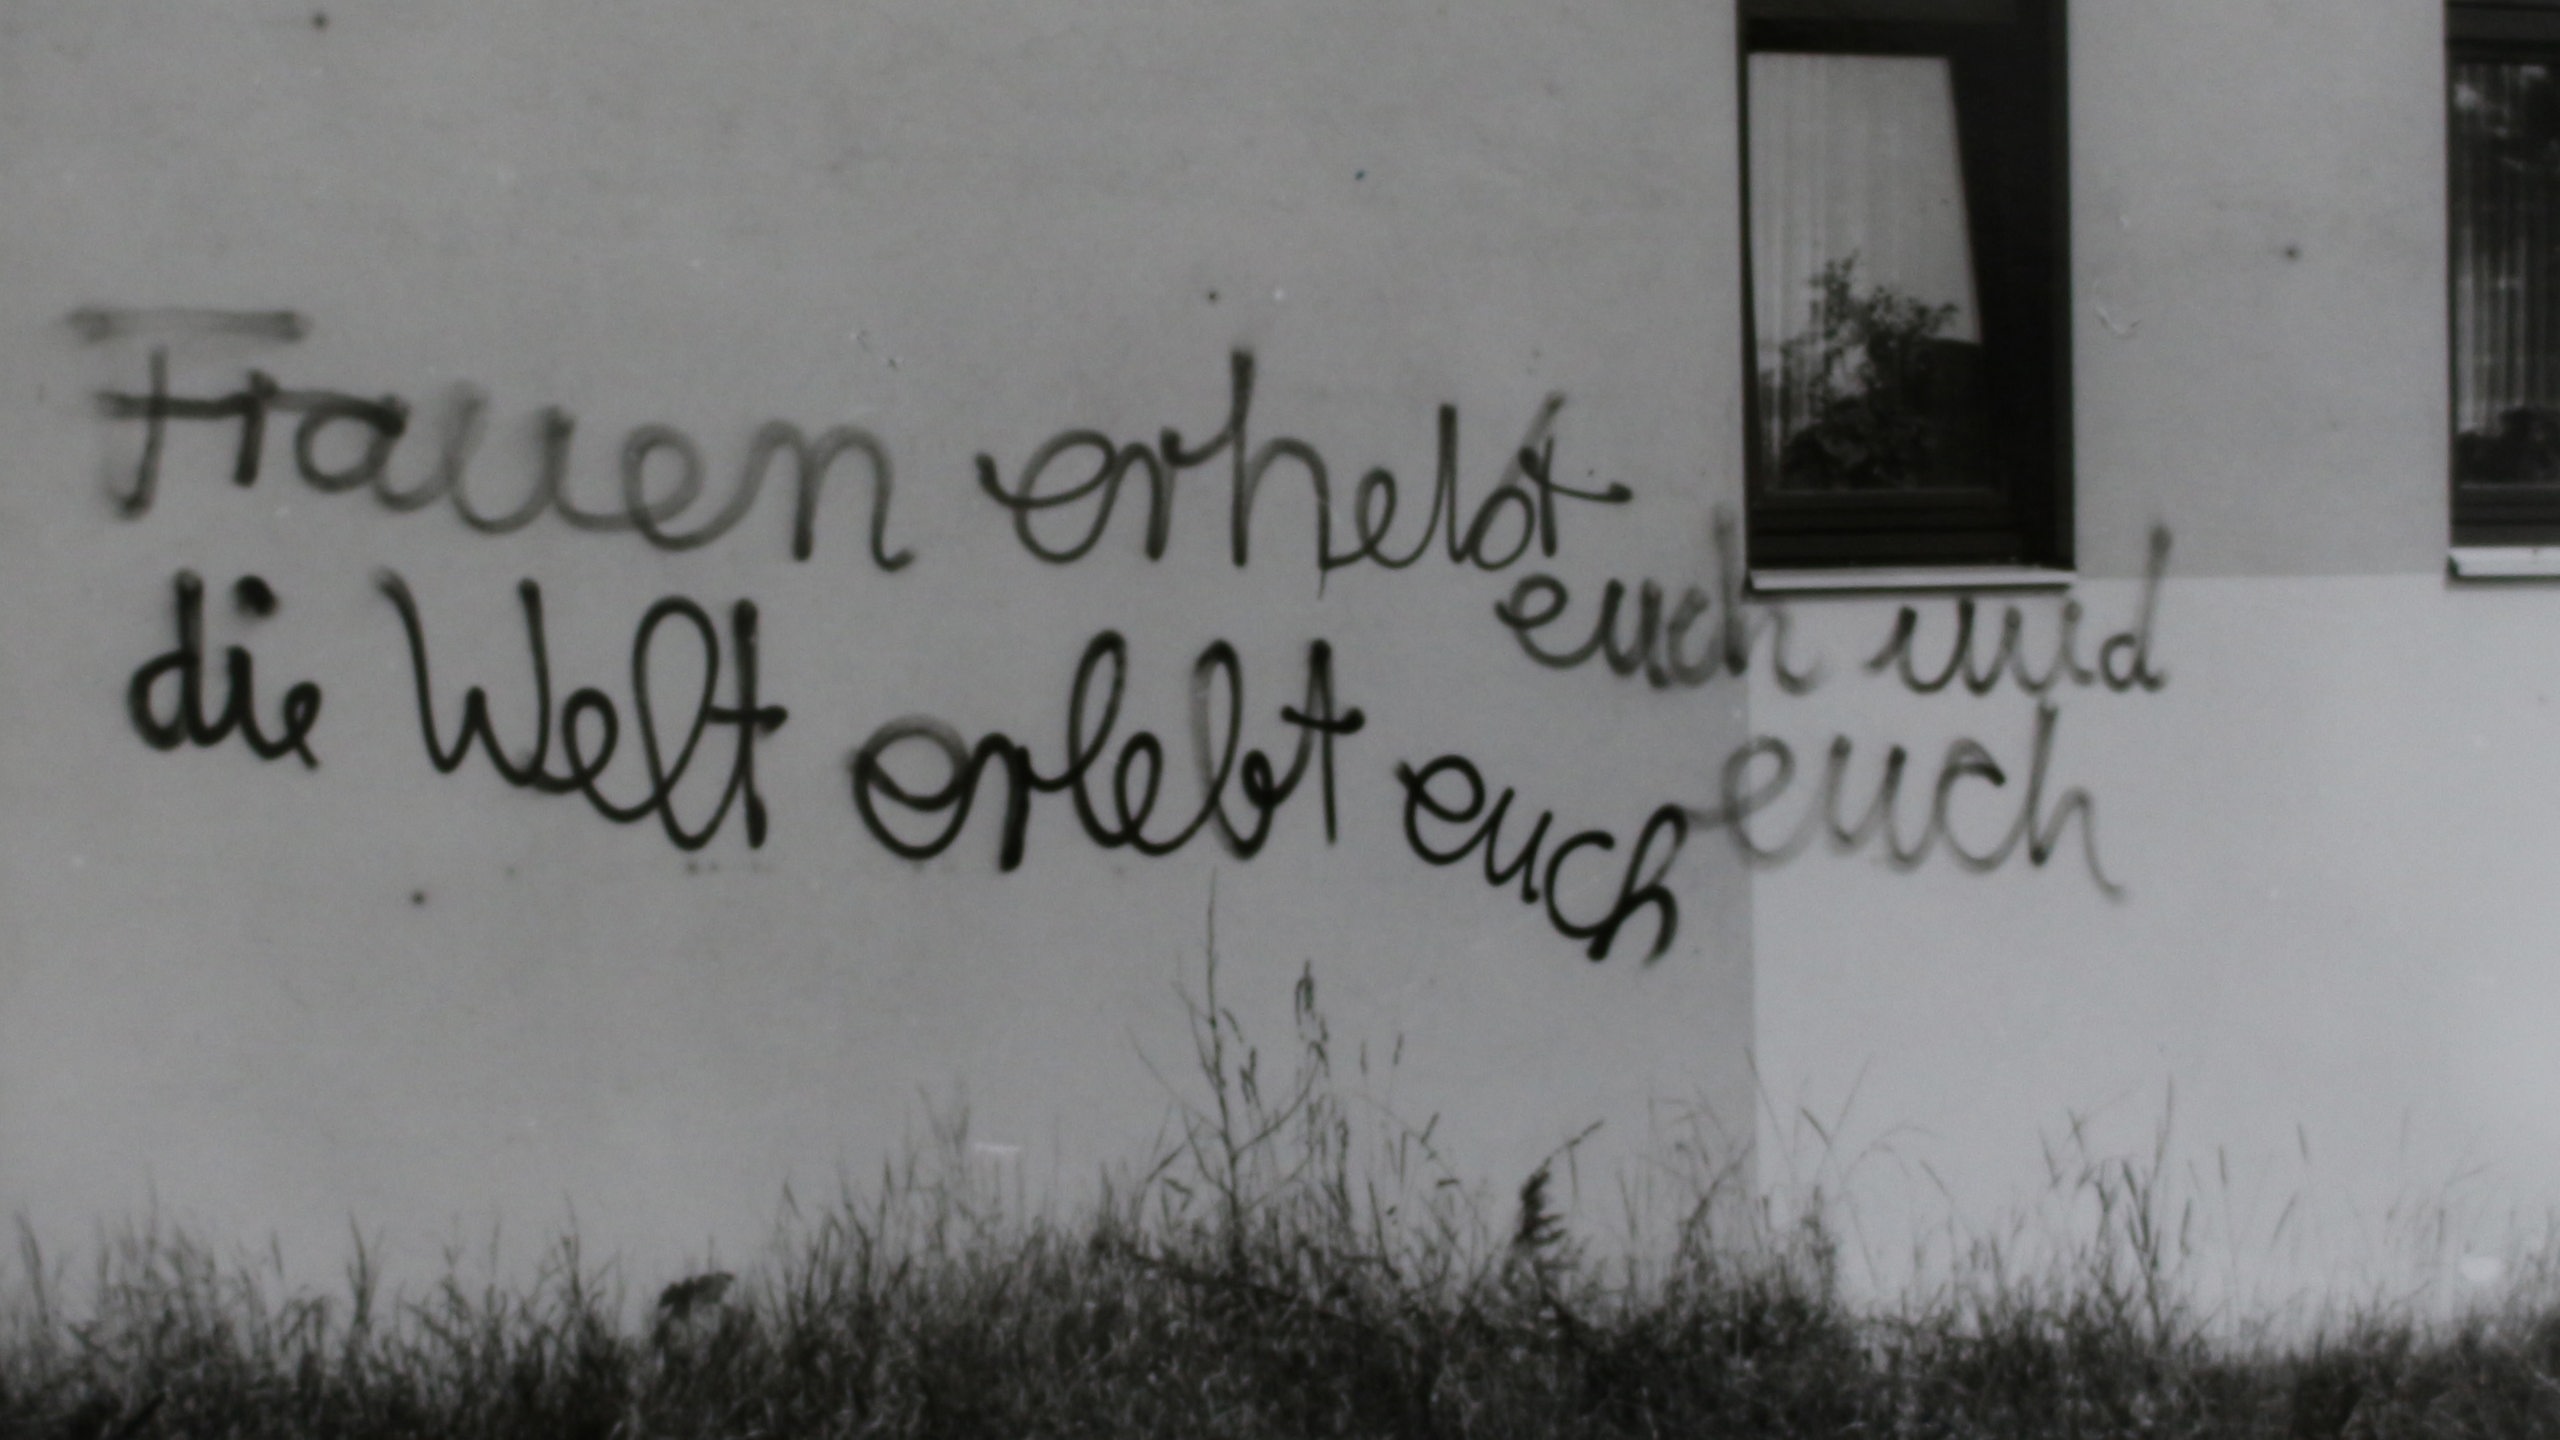 Frauen erhebt
euch und
die Welt erlebt euch euch